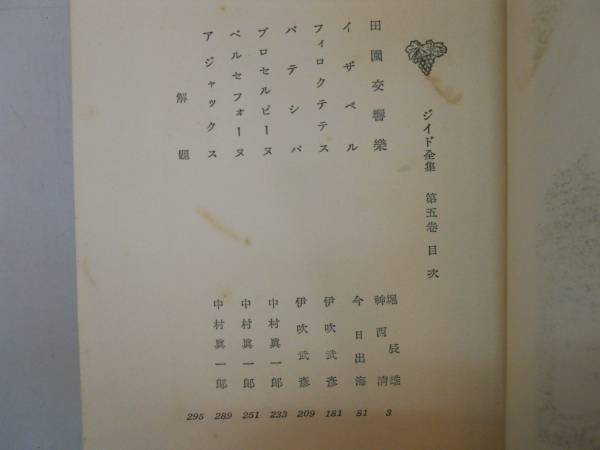 ジイド全集 第五巻 目次
田園交響樂 堀辰雄 神西清 3
イザベル 今日出海 81
フィロクテテス 伊吹武彥 181
バテシバ 伊吹武彥 209
プロセルピーヌ 中村眞一郎 233
ペルセフォーヌ 中村眞一郎 251
アジャックス 中村眞一郎 289
解題 295